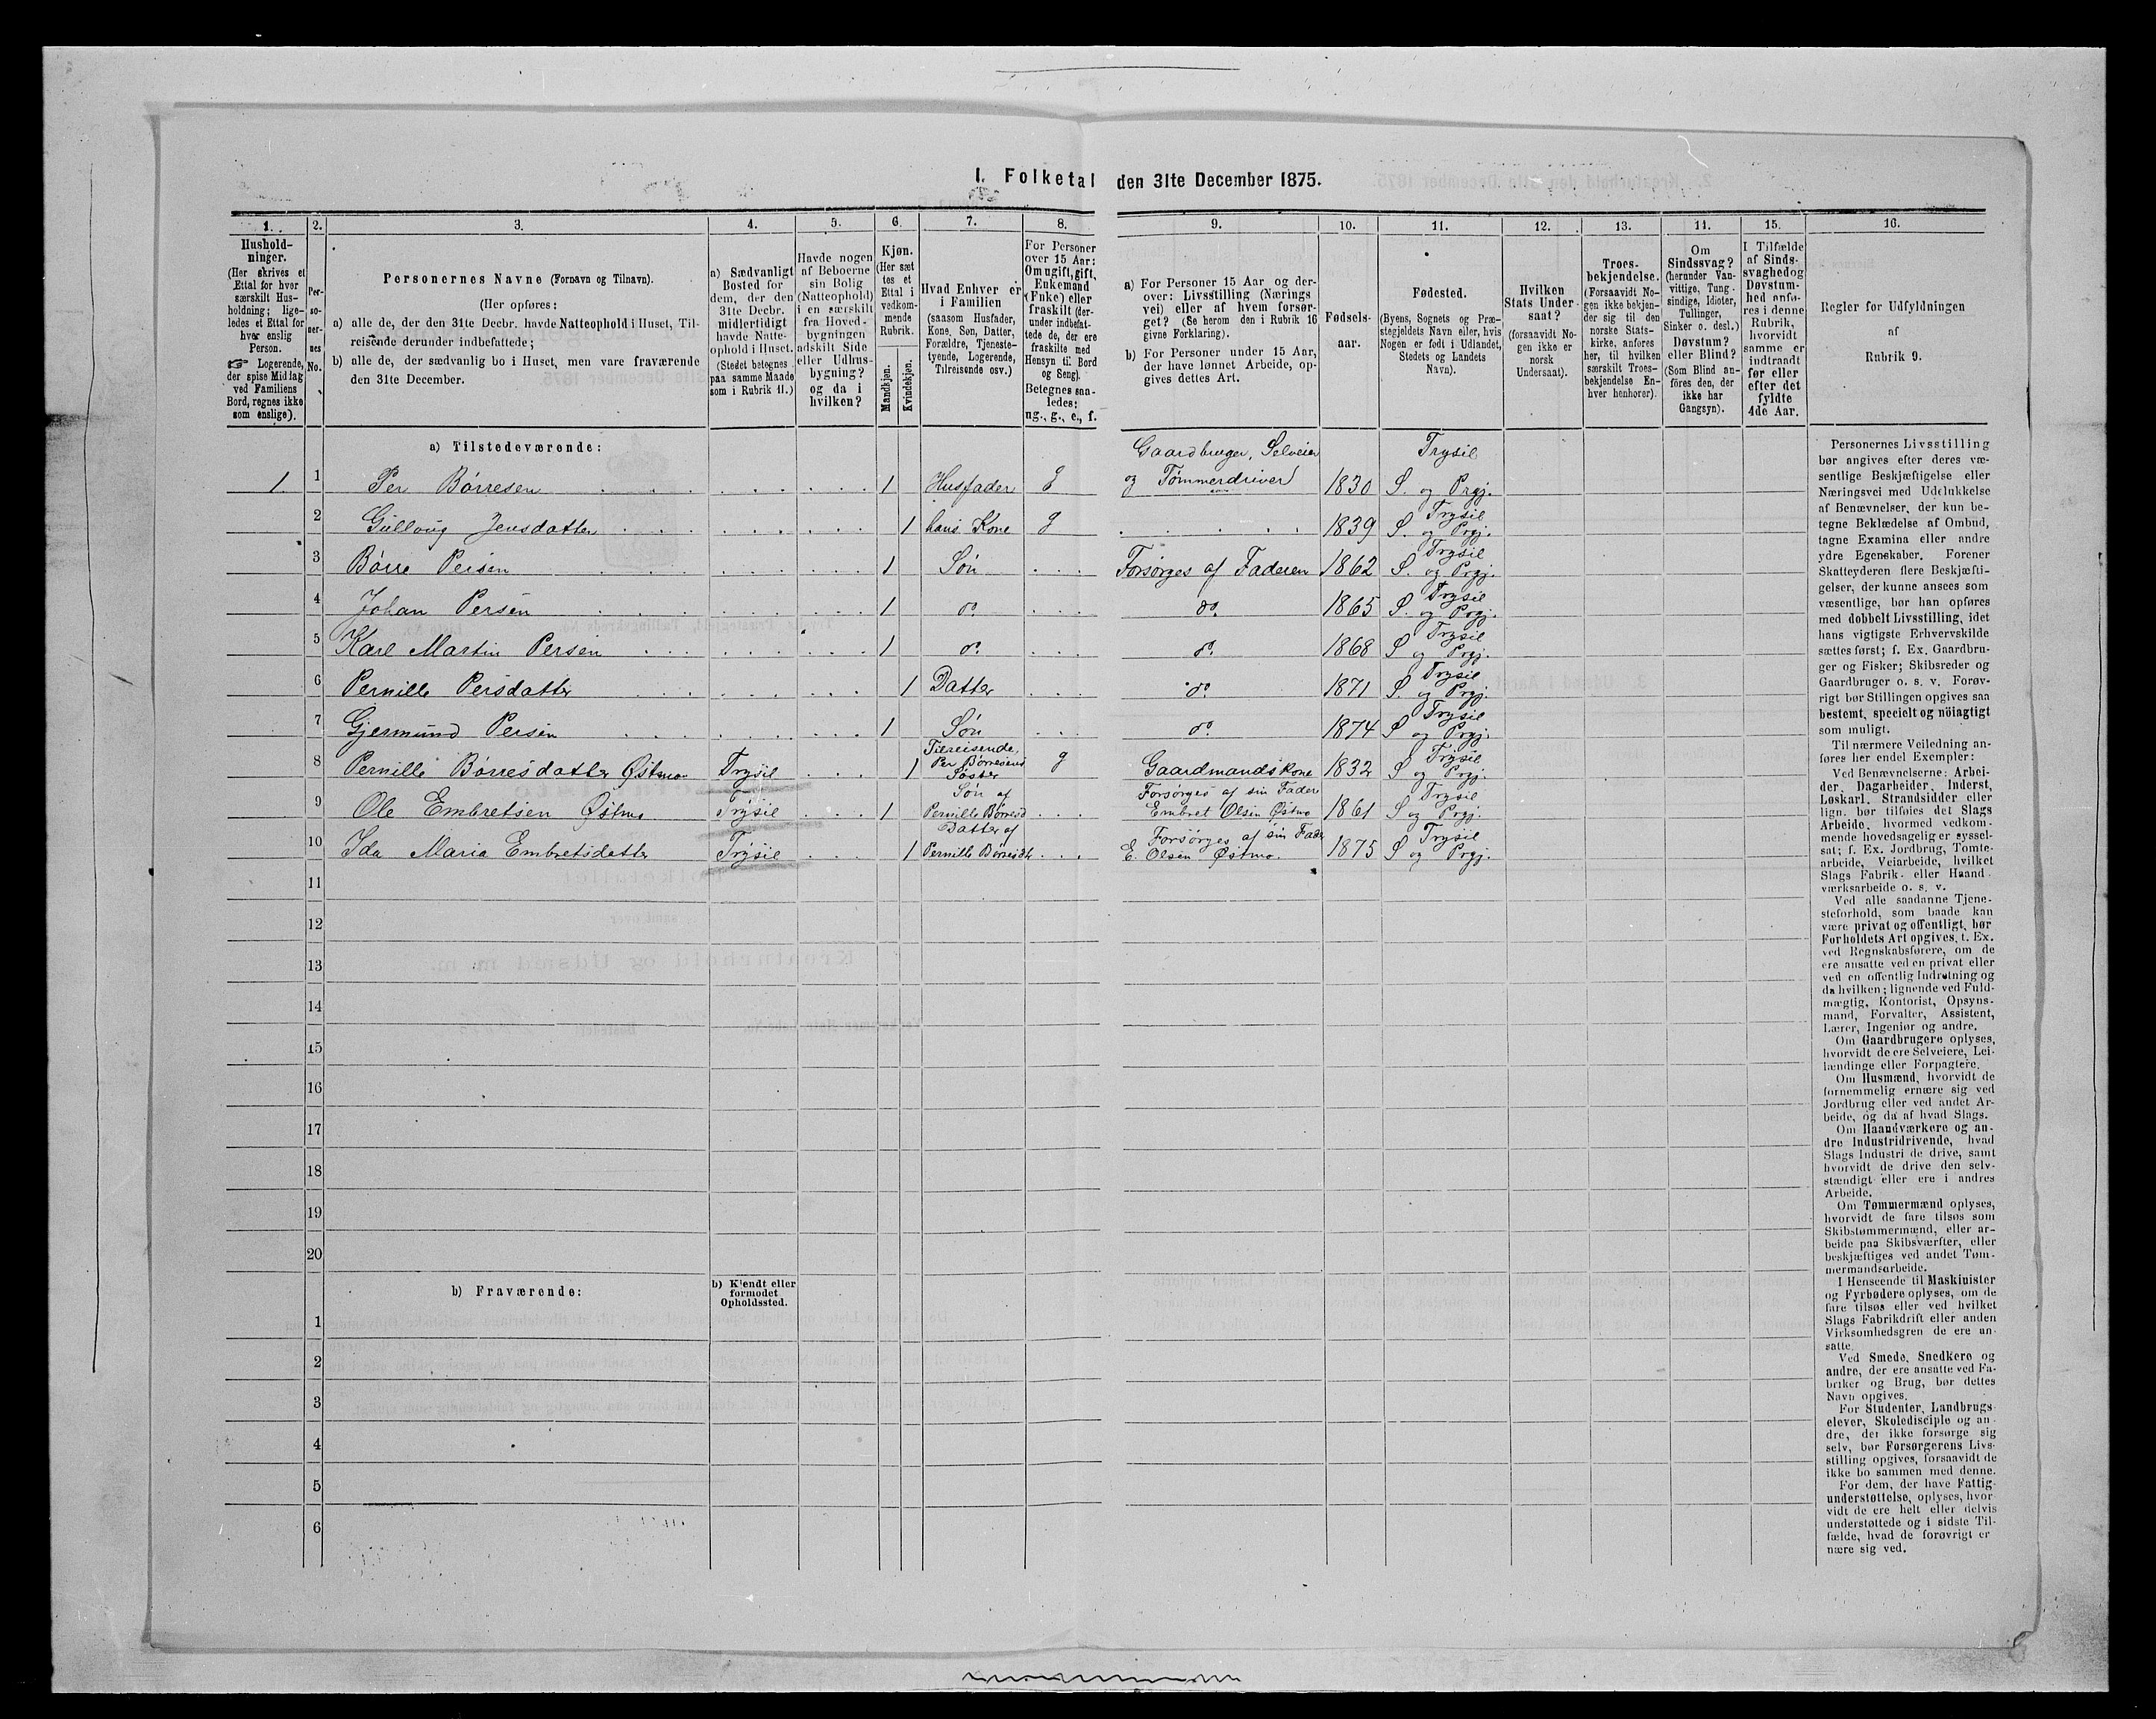 I. Folketal den 31te December 1875.
1. 2. 3. 4. 5. 6. 7. 8. 9. 10. 11. 12. 13. 14. 15. 16.
Hushold-
ninger.
(Her skrives et
Ettal for hver
særskilt Hus-
holdning; lige-
ledes et Ettal for
hver enslig
Person.
☞ Logerende,
der spise Middag
ved Familiens
Bord, regnes ikke
som enslige).
Per-
so-
ner-
nes
No.
Personernes Navne (Fornavn og Tilnavn).
(Her opføres:
a) alle de, der den 31te Decbr. havde Natteophold i Huset, Til-
reisende derunder indbefattede;
b) alle de, der sædvanlig bo i Huset, men vare fraværende
den 31te December.
a) Sædvanligt
Bosted for
dem, der den
31te Decbr.
midlertidigt
havde Natte-
ophold i Huset.
(Stedet betegnes
paa samme Maade
som i Rubrik 11.)
Havde nogen
af Beboerne
sin Bolig
(Natteophold)
i en særskilt
fra Hoved-
bygningen
adskilt Side
eller Udhus-
bygning?
og da i
hvilken?
Kjøn.
(Her sæt
tes et
Ettal i
vedkom-
mende
Rubrik.
Mandkjøn.
Kvindekjøn.
Hvad Enhver er
i Familien
(saasom Husfader,
Kone, Søn, Datter,
Forældre, Tjeneste-
tyende, Logerende,
Tilreisende osv.)
For Personer
over 15 Aar:
Om ugift, gift,
Enkemand
(Enke) eller
fraskilt (der-
under indbefat-
tede de, der ere
fraskilte med
Hensyn til Bord
og Seng).
Betegnes saa-
ledes:
ug., g., e., f.
a) For Personer 15 Aar og der-
over: Livsstilling (Nærings
vei) eller af hvem forsør-
get? (Se herom den i Rubrik 16
givne Forklaring).
b) For Personer under 15 Aar,
der have lønnet Arbeide, op-
gives dettes Art.
Fødsels-
aar.
Fødested.
(Byens, Sognets og Præ-
stegjeldets Navn eller, hvis
Nogen er født i Udlandet,
Stedets og Landets
Navn).
Hvilken
Stats Under-
saat?
(forsaavidt No-
gen ikke er
norsk
Undersaat).
Troes-
bekjendelse.
(Forsaavidt No-
gen ikke bekjen-
der sig til den
norske Stats-
kirke, anføres
her, til hvilken
særskilt Troes-
bekjendelse En-
hver henhører).
Om
Sindssvag?
(herunder Van-
vittige, Tung-
sindige, Idioter,
Tullinger,
Sinker o. desl.)
Døvstum?
eller Blind?
(Som Blind an-
føres den, der
ikke har
Gangsyn).
I Tilfælde
af Sinds-
svaghed og
Døvstum-
hed anfø-
res i denne
Rubrik,
hvorvidt
samme er
indtraadt
før eller
efter det
fyldte
4de Aar.
Regler for Udfyldningen
af
Rubrik 9.
a) Tilstedeværende:
Gaardbruger, Selveier Trysil
1 1 Per Børresen 1 Husfader g og Tømmerdriver 1830 S. og Prgj.
Trysil
2 Gulloug Jensdatter 1 hans Kone g 1839 S. og Prgj.
Trysil
3 Børre Persen 1 Søn Forsørges af Faderen 1862 S. og Prgj.
Trysil
4 Johan Persen 1 do. do. 1865 S. og Prgj.
Trysil
5 Karl Martin Persen 1 do. do. 1868 S og Prgj.
Trysil
6 Pernille Persdatter 1 Datter do 1871 S. og Prgj.
Trysil
7 Gjermund Persen 1 Søn do. 1874 S og Prgj.
Tilreisende, Trysil
8 Pernille Børresdatter Østmo Trysil 1 Per Børresens Søster g Gaardmandskone 1832 S og Prgj.
Søn af Forsørges af sin Fader Trysil
9 Ole Embretsen Østmo Trysil 1 Pernille Børresd Embret Olsen Østmo 1861 S og Prgj.
Datter af Forsørges af sin Fader Trysil
10 Ida Maria Embretsdatter Trysil 1 Pernille Børresdtr E. Olsen Østmo. 1875 S og Prgj.
11
12
13
14
15
16
17
18
19
20
b) Fraværende:
b) Kjendt eller
formodet
Opholdssted.
1
2
3
4
5
6
Personernes Livsstilling
bør angives efter deres væ-
sentlige Beskjæftigelse eller
Næringsvei med Udelukkelse
af Benævnelser, der kun be-
tegne Beklædelse af Ombud,
tagne Examina eller andre
ydre Egenskaber. Forener
Skatteyderen flere Beskjæfti-
gelser, der kunne ansees som
væsentlige, bør han opføres
med dobbelt Livsstilling, idet
hans vigtigste Erhvervskilde
sættes først; f. Ex. Gaardbru-
ger og Fisker; Skibsreder og
Gaardbruger o. s. v. Forøv-
rigt bør Stillingen opgives saa
bestemt, specielt og nöiagtigt
som muligt.
Til nærmere Veiledning an-
føres her endel Exempler:
Ved Benævnelserne: Arbei-
der, Dagarbeider, Inderst,
Løskarl, Strandsidder eller
lign. bør tilføies det Slags
Arbeide, hvormed vedkom-
mende hovedsagelig er syssel-
sat; f. Ex. Jordbrug, Tomte-
arbeide, Veiarbeide, hvilket
Slags Fabrik- eller Haand-
værksarbeide o. s. v.
Ved alle saadanne Tjene-
steforhold, som baade kan
være privat og offentligt, bør
Forholdets Art opgives, t. Ex.
ved Regnskabsførere, om de
ere ansatte ved en privat eller
ved en offentlig Indretning og
da hvilken; lignende ved Fuld-
mægtig, Kontorist, Opsyns-
mand, Forvalter, Assistent,
Lærer, Ingeniør og andre.
Om Gaardbrugere oplyses,
hvorvidt de ere Selveiere, Lei-
lændinge eller Forpagtere.
Om Husmænd, hvorvidt de
fornemmelig ernære sig ved
Jordbrug eller ved andet Ar-
beide, og da af hvad Slags.
Om Haandværkere og an-
dre Industridrivende, hvad
Slags Industri de drive, samt
hvorvidt de drive den selv-
stændigt eller ere i andres
Arbeide.
Om Tømmermænd oplyses,
hvorvidt de fare tilsøs som
Skibstømmermænd, eller ar-
beide paa Skibsværfter, eller
beskjæftiges ved andet Tøm-
mermandsarbeide.
I Henseende til Maskinister
og Fyrbødere oplyses, om de
fare tilsøs eller ved hvilket
Slags Fabrikdrift eller anden
Virksomhedsgren de ere an-
satte.
Ved Smede, Snedkere og
andre, der ere ansatte ved Fa-
briker og Brug, bør dettes
Navn opgives.
For Studenter, Landbrugs-
elever, Skoledisciple og an-
dre, der ikke forsørge sig
selv, bør Forsørgerens Livs-
stilling opgives, forsaavidt de
ikke bo sammen med denne.
For dem, der have Fattig-
understøttelse, oplyses, hvor-
vidt de ere helt eller delvis
understøttede og i sidste Til-
fælde, hvad de forøvrigt er
nære sig ved.